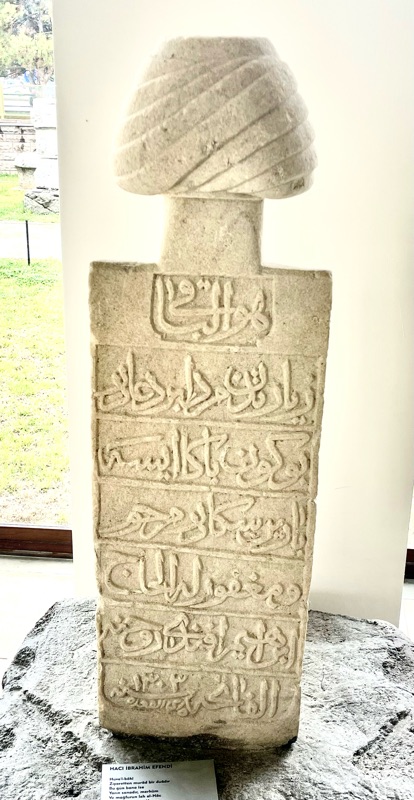 هو الباقي
زيارتدن مراد بر دعادر
بو كون بكا ايسه
يارين سكادر مرحوم
و مغفور له الحاج
ابراهيم افندى
الفاتحه
HACI İBRAHİM EFENDİ
Huve'l-bâkî
Ziyaretten murâd bir duâdır
Bu gün bana ise
Yarın sanadır, merhûm
Ve mağfurun leh el-Hâc